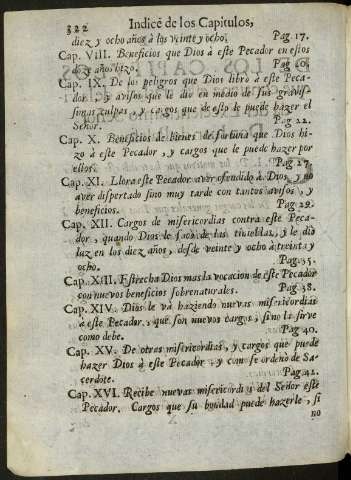 322 Indice de los Capitulos,
diez y ocho años à los veinte y ocho. Pag. 17.
Cap. VIII. Beneficios que Dios à este Pecador en estos
diez años hizo. Pag. 40.
Cap. IX. De los peligros que Dios librò à este Peca-
dor, y avisos que le diò en medio de sus gravis-
simas culpas, y cargos que de esto le puede hazer el
Señor. Pag. 22.
Cap. X. Beneficios de bienes de fortuna que Dios hi-
zo à este Pecador, y cargos que le puede hazer por
ellos. Pag. 27.
Cap. XI. Llora este Pecador aver ofendido à Dios, y no
aver dispertado sino muy tarde con tantos avisos, y
beneficios. Pag. 29.
Cap. XII. Cargos de misericordias contra este Peca-
dor, quando Dios le sacò de las tinieblas, y le diò
luz en los diez años, desde veinte y ocho à treinta y
ocho. Pag. 35.
Cap. XIII. Estrecha Dios mas la vocacion de este Pecador
con nuevos beneficios sobrenaturales. Pag. 38.
Cap. XIV. Dios le và haziendo nuevas misericordias
à este Pecador, que son nuevos cargos, si no le sirve
como debe. Pag. 40.
Cap. XV. De otras misericordias, y cargos que puede
hazer Dios à este Pecador, y como se ordenò de Sa-
cerdote. Pag. 42.
Cap. XVI. Recibe nuevas misericordias del Señor este
Pecador. Cargos que su bondad puede hazerle, si
no